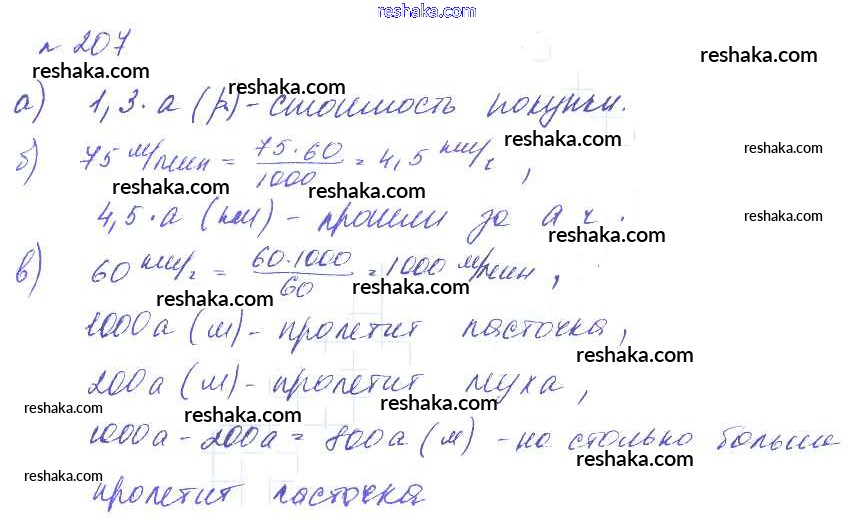 reshaka.com
№ 207
reshaka.com reshaka.com
reshaka.com
а) 1,3·а (р) - стоимость покупки.
reshaka.com reshaka.com
б) 75 м/мин = 75·60/1000 = 4,5 км/ч,
reshaka.com reshaka.com reshaka.com
4,5·а (км) - прошли за а ч.
reshaka.com reshaka.com
в) 60 км/ч = 60·1000/60 = 1000 м/мин,
reshaka.com reshaka.com reshaka.com
1000а (м) - пролетит ласточка,
reshaka.com
200а (м) - пролетит муха,
reshaka.com reshaka.com reshaka.com
1000а - 200а = 800а (м) - на столько больше
reshaka.com reshaka.com reshaka.com
пролетит ласточка